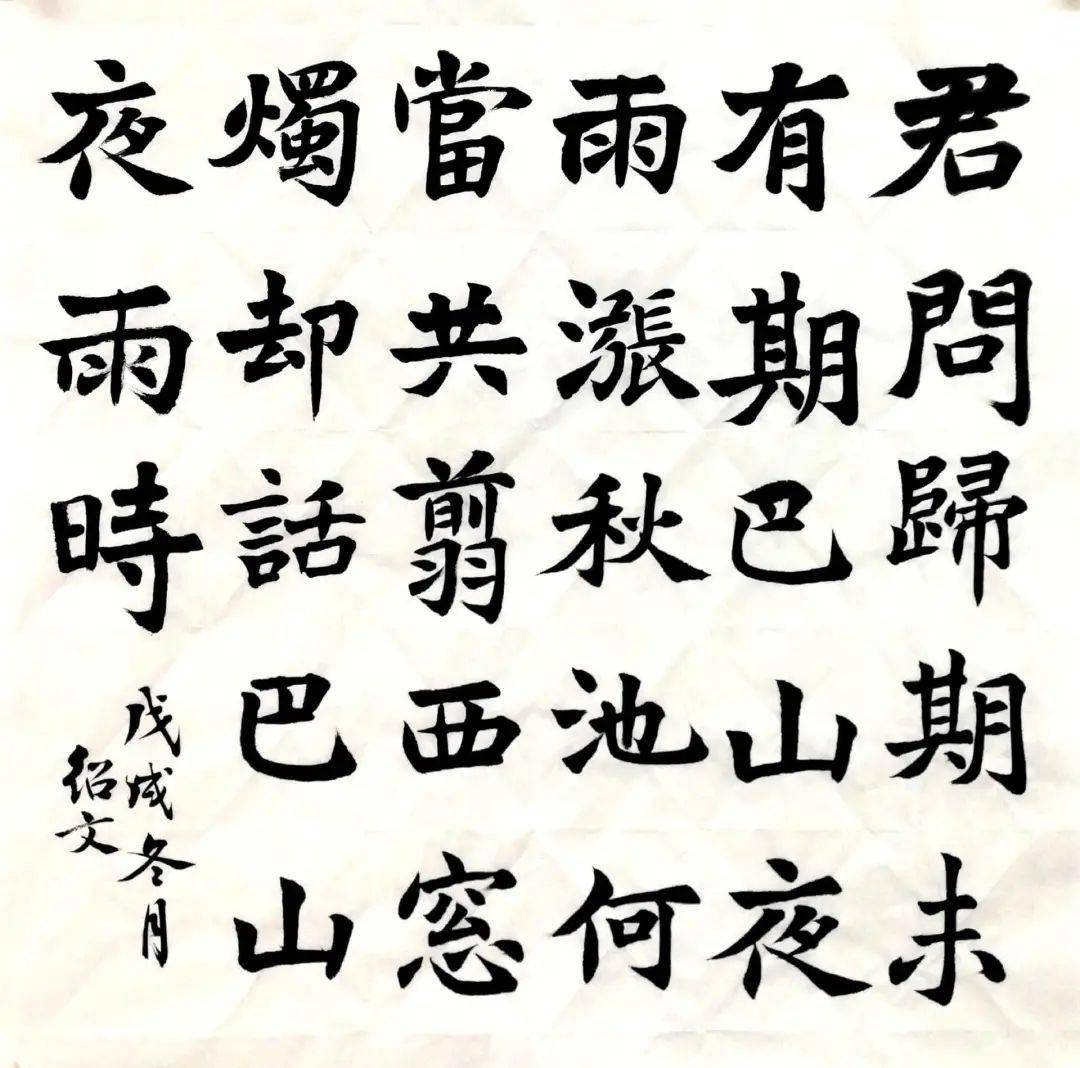 君問歸期未
有期巴山夜
雨漲秋池何
當共剪西窓
燭却話巴山
夜雨時
戊戌冬月
紹文